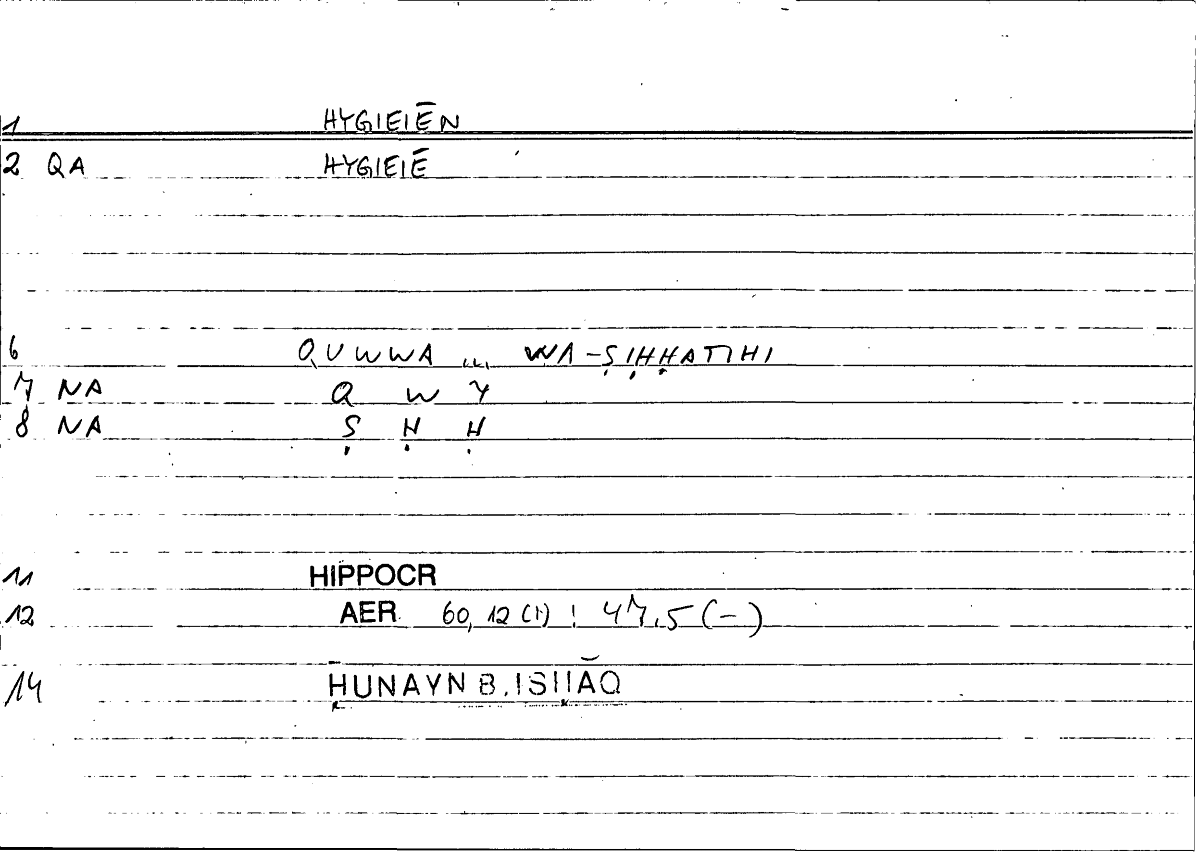 1 HYGIEIĒN
2 QA HYGIEIĒ
6 QUWWA ... WA-ṢIḤḤATIHI
7 NA Q W Y
8 NA Ṣ Ḥ Ḥ
11 HIPPOCR
12 AER. 60, 12 (1) ; 47,5 (-)
14 ḤUNAYN B. ISḤĀQ